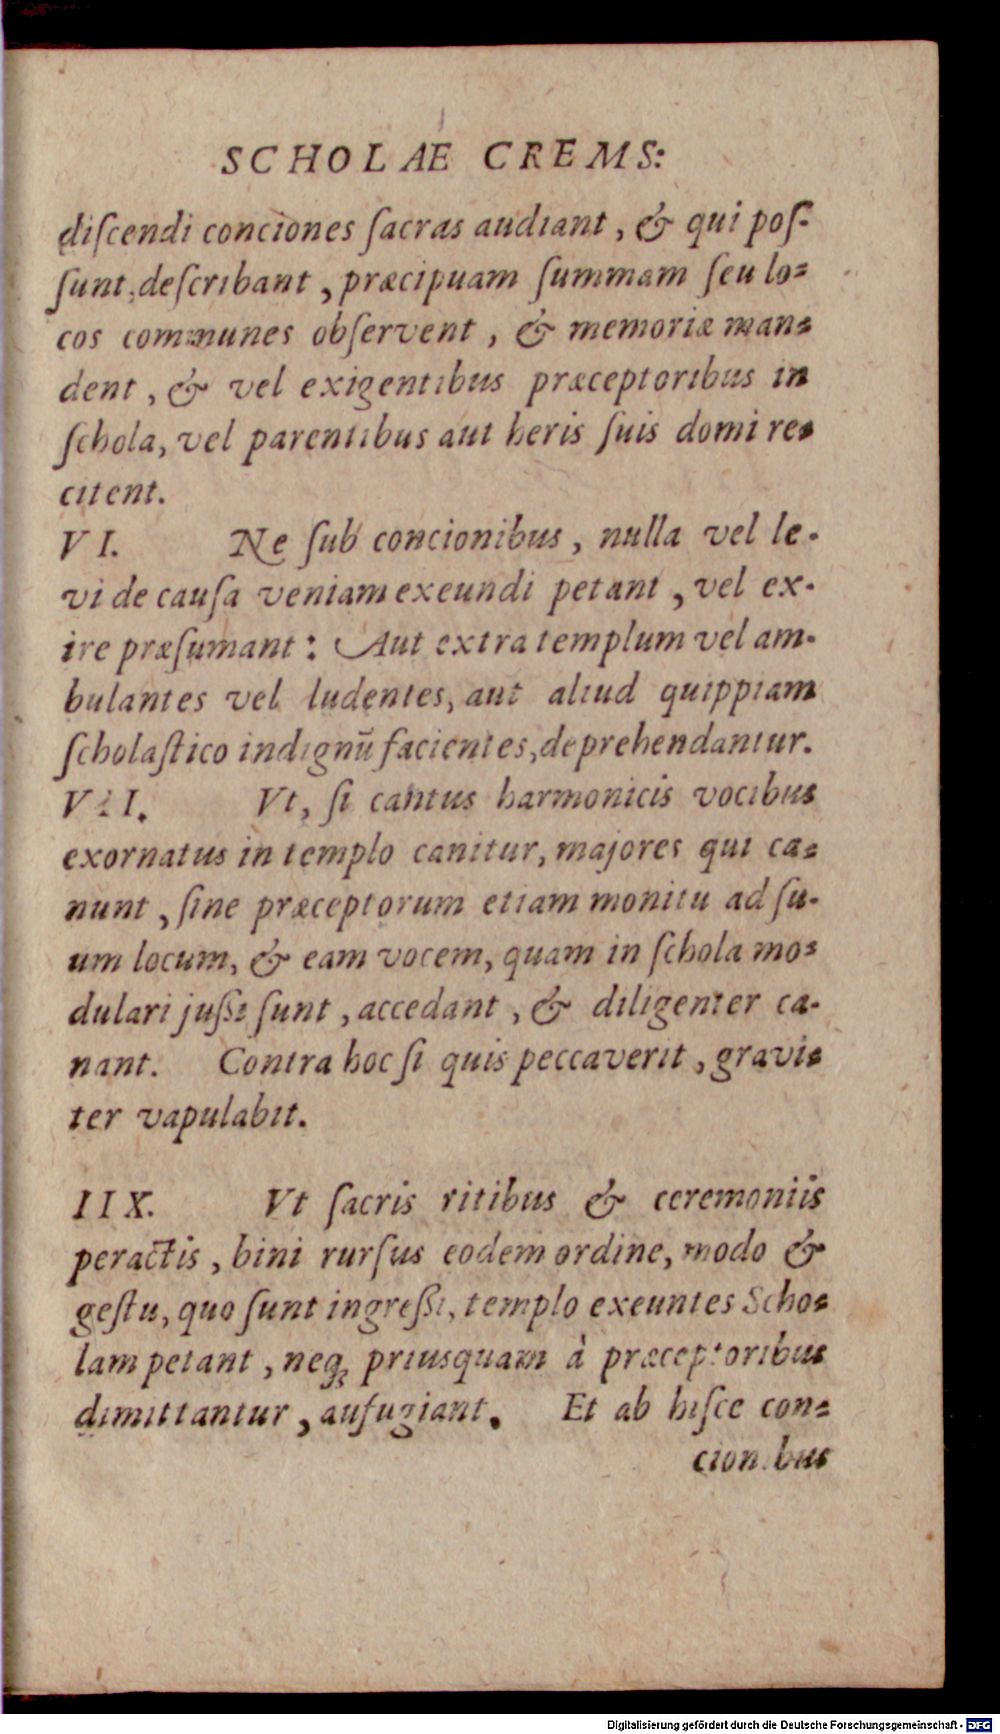 SCHOLAE CREMS:
diſcendi conciones ſacras audiant, & qui poſ-
ſunt, deſcribant, præcipuam ſummam ſeu lo-
cos communes obſervent, & memoriæ man-
dent, & vel exigentibus præceptoribus in
ſchola, vel parentibus aut heris ſuis domi re-
citent.
VI. Ne ſub concionibus, nulla vel le-
vi de cauſa veniam exeundi petant, vel ex-
ire præſumant: Aut extra templum vel am-
bulantes vel ludentes, aut aliud quippiam
ſcholaſtico indignū facientes, deprehendantur.
VII. Vt, ſi cantus harmonicis vocibus
exornatus in templo canitur, majores qui ca-
nunt, ſine præceptorum etiam monitu ad ſu-
um locum, & eam vocem, quam in ſchola mo-
dulari juſſi ſunt, accedant, & diligenter ca-
nant. Contra hoc ſi quis peccaverit, gravi-
ter vapulabit.
IIX. Vt ſacris ritibus & ceremoniis
peractis, bini rurſus eodem ordine, modo &
geſtu, quo ſunt ingreſſi, templo exeuntes Scho-
lam petant, neq; priusquam à præceptoribus
dimittantur, aufugiant. Et ab hiſce con-
cionibus
Digitalisierung gefördert durch die Deutsche Forschungsgemeinschaft - DFG